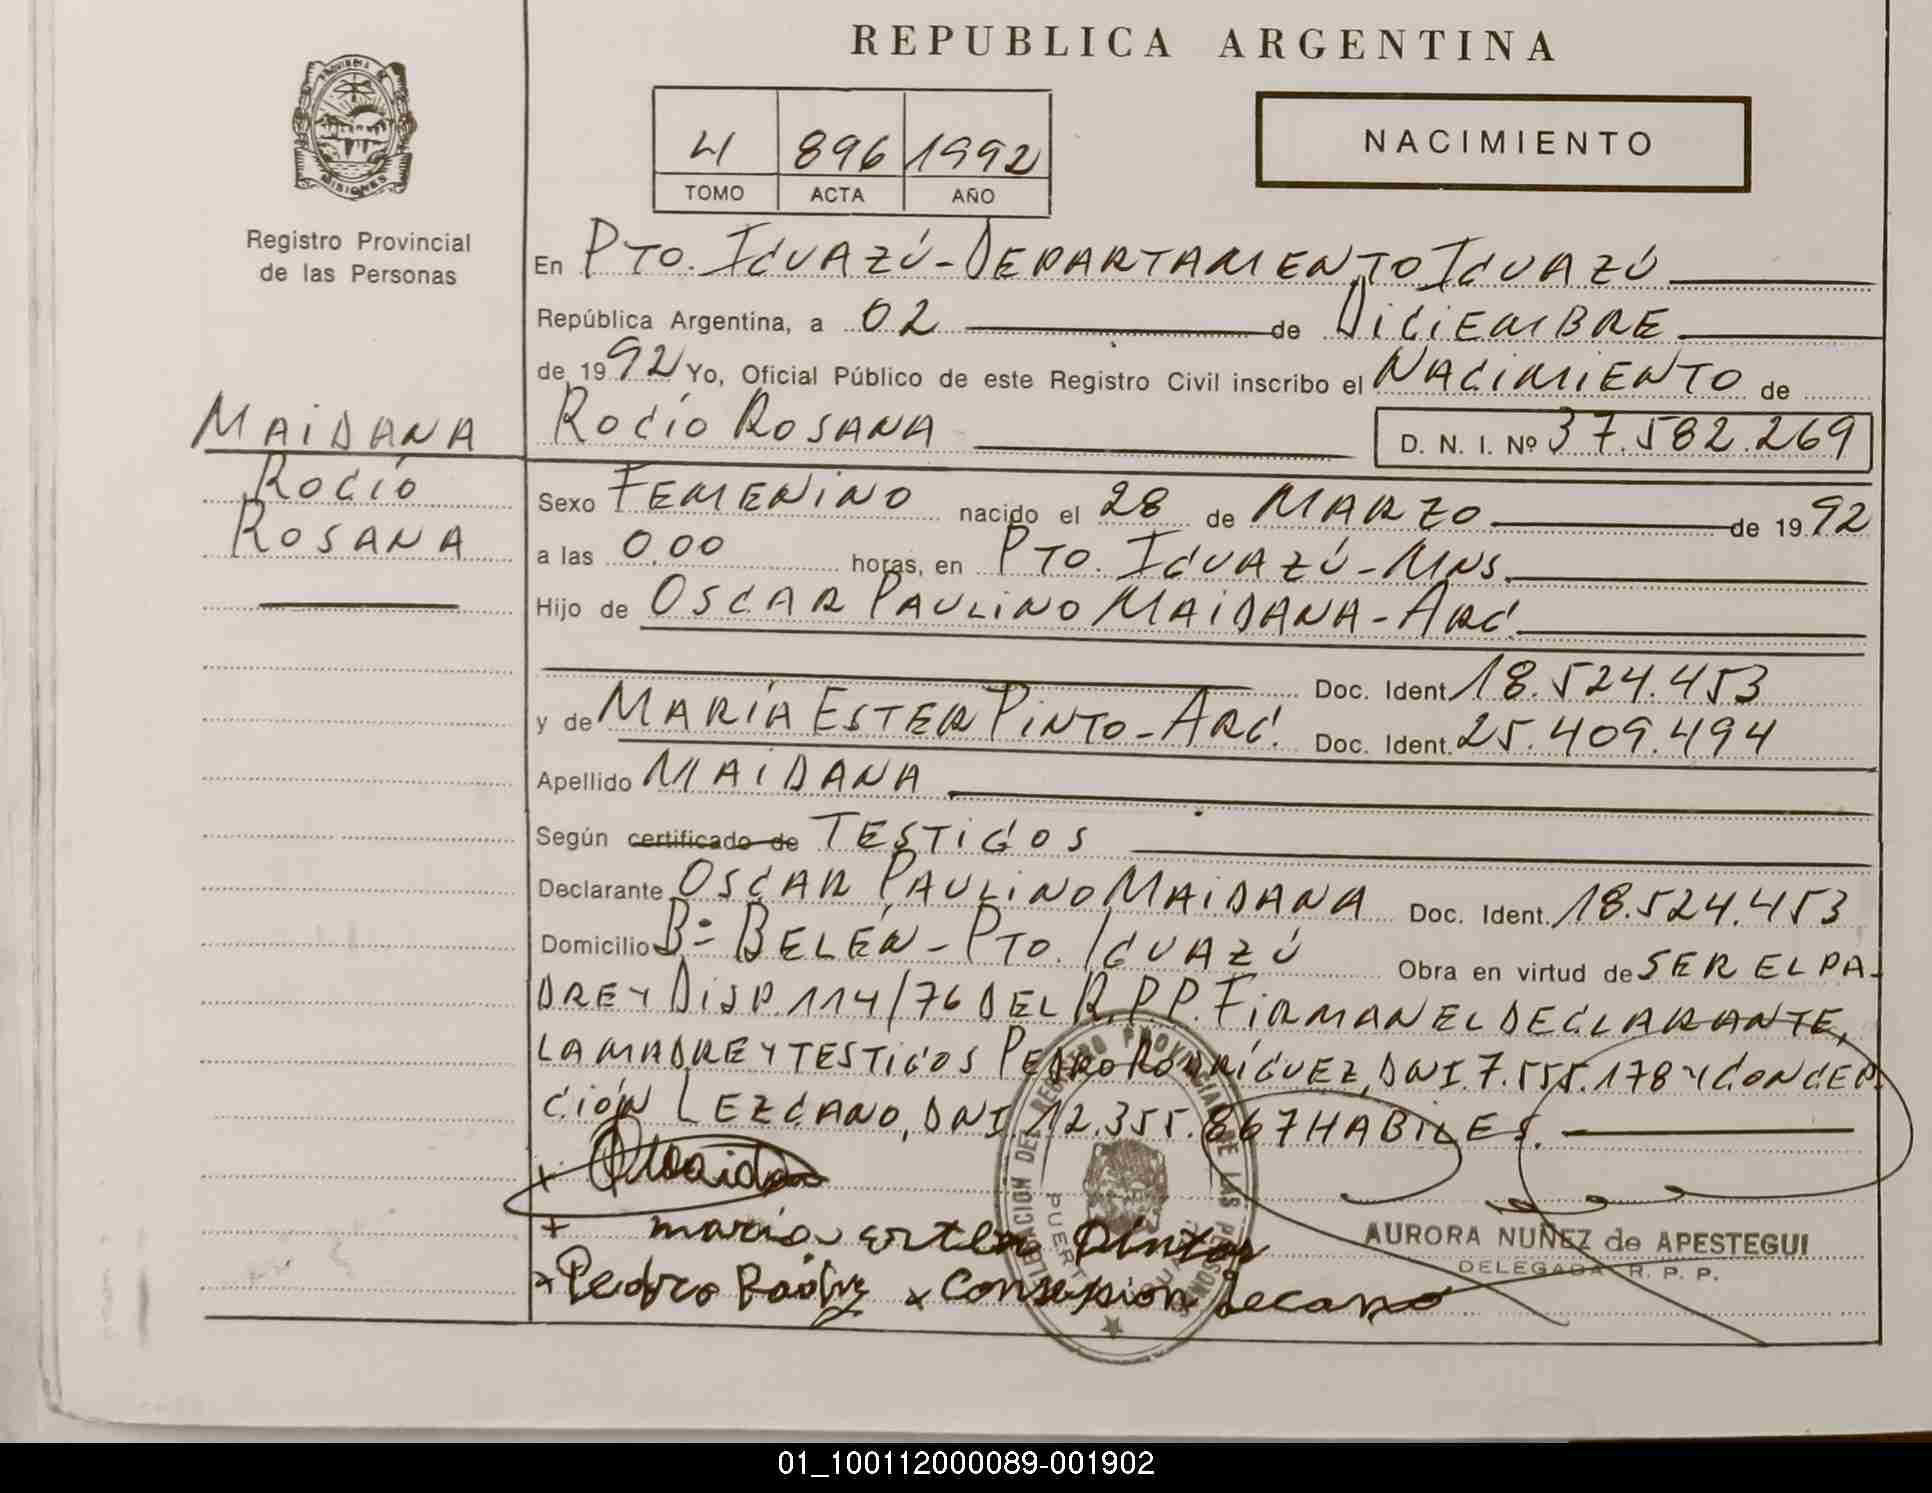 REPUBLICA ARGENTINA
PROVINCIA DE
MISIONES
Registro Provincial
de las Personas
4 896 1992
TOMO ACTA AÑO
NACIMIENTO
En PTO. IGUAZÚ - DEPARTAMENTO IGUAZÚ
República Argentina, a 02 de DICIEMBRE
de 1992 Yo, Oficial Público de este Registro Civil inscribo el NACIMIENTO de
ROCÍO ROSANA D. N. I. Nº 37.582.269
MAIDANA
ROCÍO
ROSANA
Sexo FEMENINO nacido el 28 de MARZO de 1992
a las 0,00 horas, en PTO. IGUAZÚ - MNS.
Hijo de OSCAR PAULINO MAIDANA - ARG.
Doc. Ident. 18.524.453
y de MARÍA ESTER PINTO - ARG. Doc. Ident. 25.409.494
Apellido MAIDANA
Según certificado de TESTIGOS
Declarante OSCAR PAULINO MAIDANA Doc. Ident. 18.524.453
Domicilio Bº BELÉN - PTO. IGUAZÚ Obra en virtud de SER EL PA-
DRE Y DISP. 114/76 DEL R.P.P. FIRMAN EL DECLARANTE,
LA MADRE Y TESTIGOS PEDRO RODRÍGUEZ, DNI. 7.555.178 Y CONCEP-
CIÓN LEZCANO, DNI. 12.355.867 HABILES.
+ maria ester pintos
x Pedro x Consepsion Lecano
DELEGACION DEL REGISTRO PROVINCIAL DE LAS PERSONAS
AURORA NUÑEZ de APESTEGUI
DELEGADA R. P. P.
01_100112000089-001902